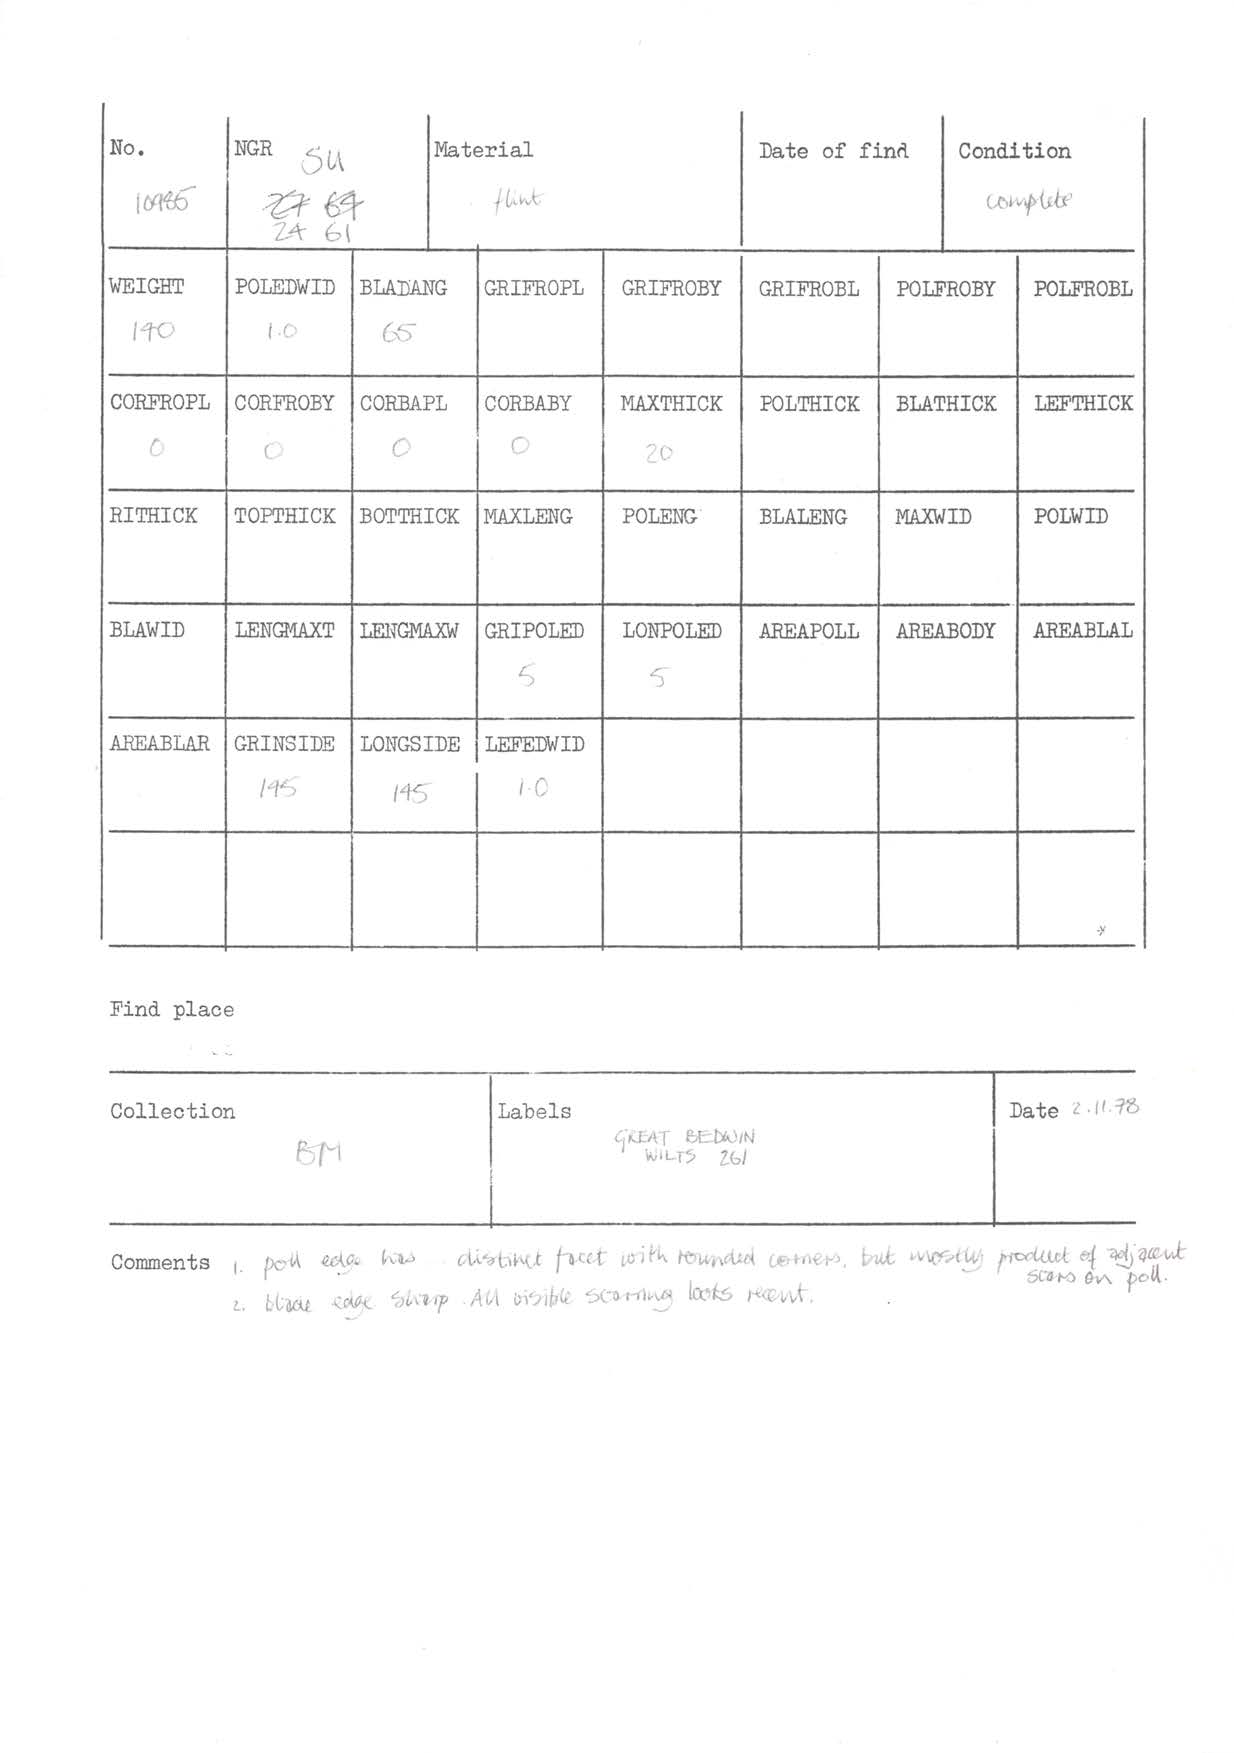 No. NGR SU Material Date of find Condition
flint complete
24 61
WEIGHT POLEDWID BLADANG GRIFROPL GRIFROBY GRIFROBL POLFROBY POLFROBL
190 1.0 65
CORFROPL CORFROBY CORBAPL CORBABY MAXTHICK POLTHICK BLATHICK LEFTHICK
0 0 0 0 20
RITHICK TOPTHICK BOTTHICK MAXLENG POLENG BLALENG MAXWID POLWID
BLAWID LENGMAXT LENGMAXW GRIPOLED LONPOLED AREAPOLL AREABODY AREABLAL
5 5
AREABLAR GRINSIDE LONGSIDE LEFEDWID
145 145 1.0
Find place
Collection Labels Date 2.11.78
BM GREAT BEDWIN
WILTS 261
Comments 1. poll edge has distinct facet with rounded corners, but mostly product of adjacent
scars on poll.
2. blade edge sharp. All visible scarring looks recent.